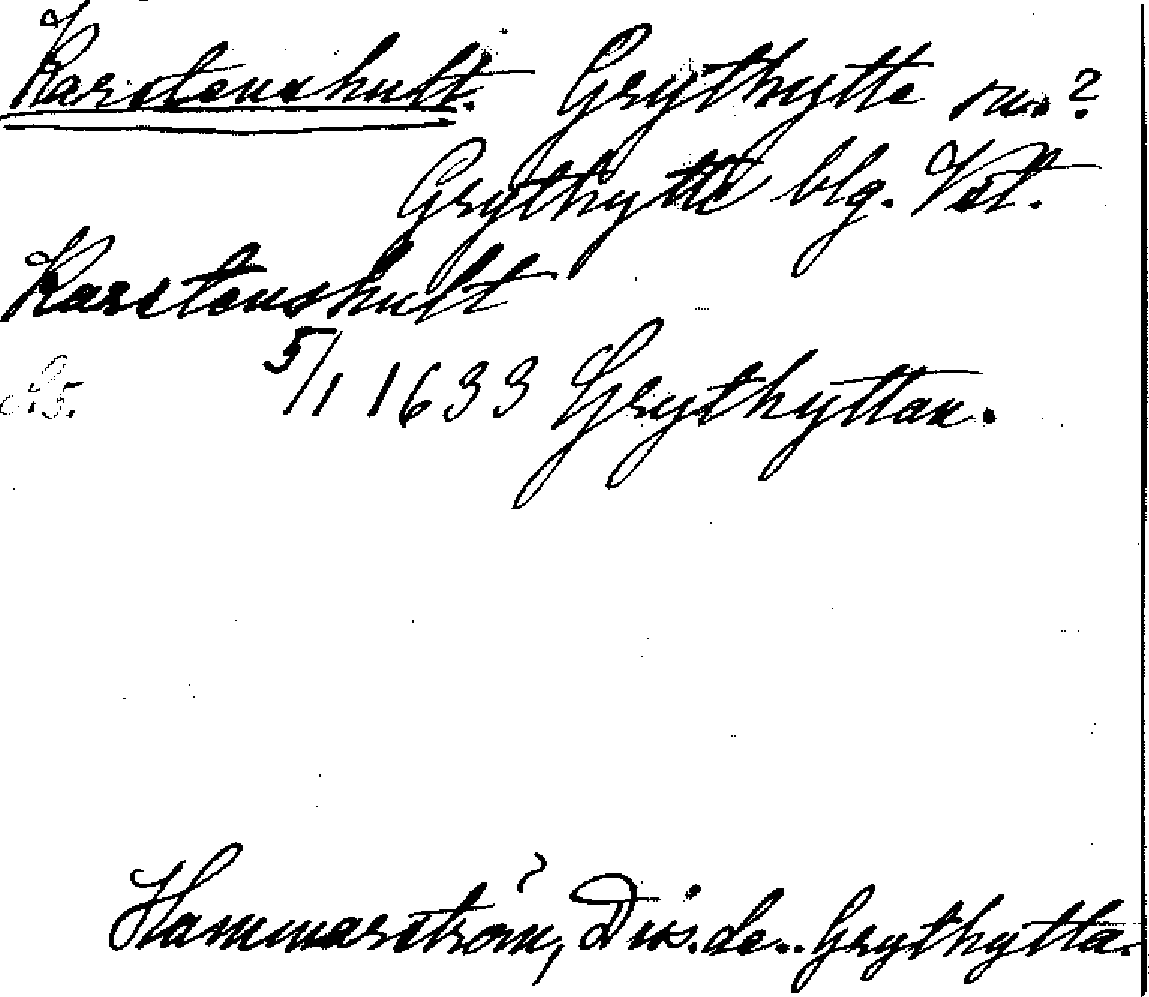 Karstenshult. Grythytte sn.?
Grythytte blg. Vstl.
Karstenshult
5/1 1633 Grythyttan.
Hammarström, Diss. de. Grythytta.